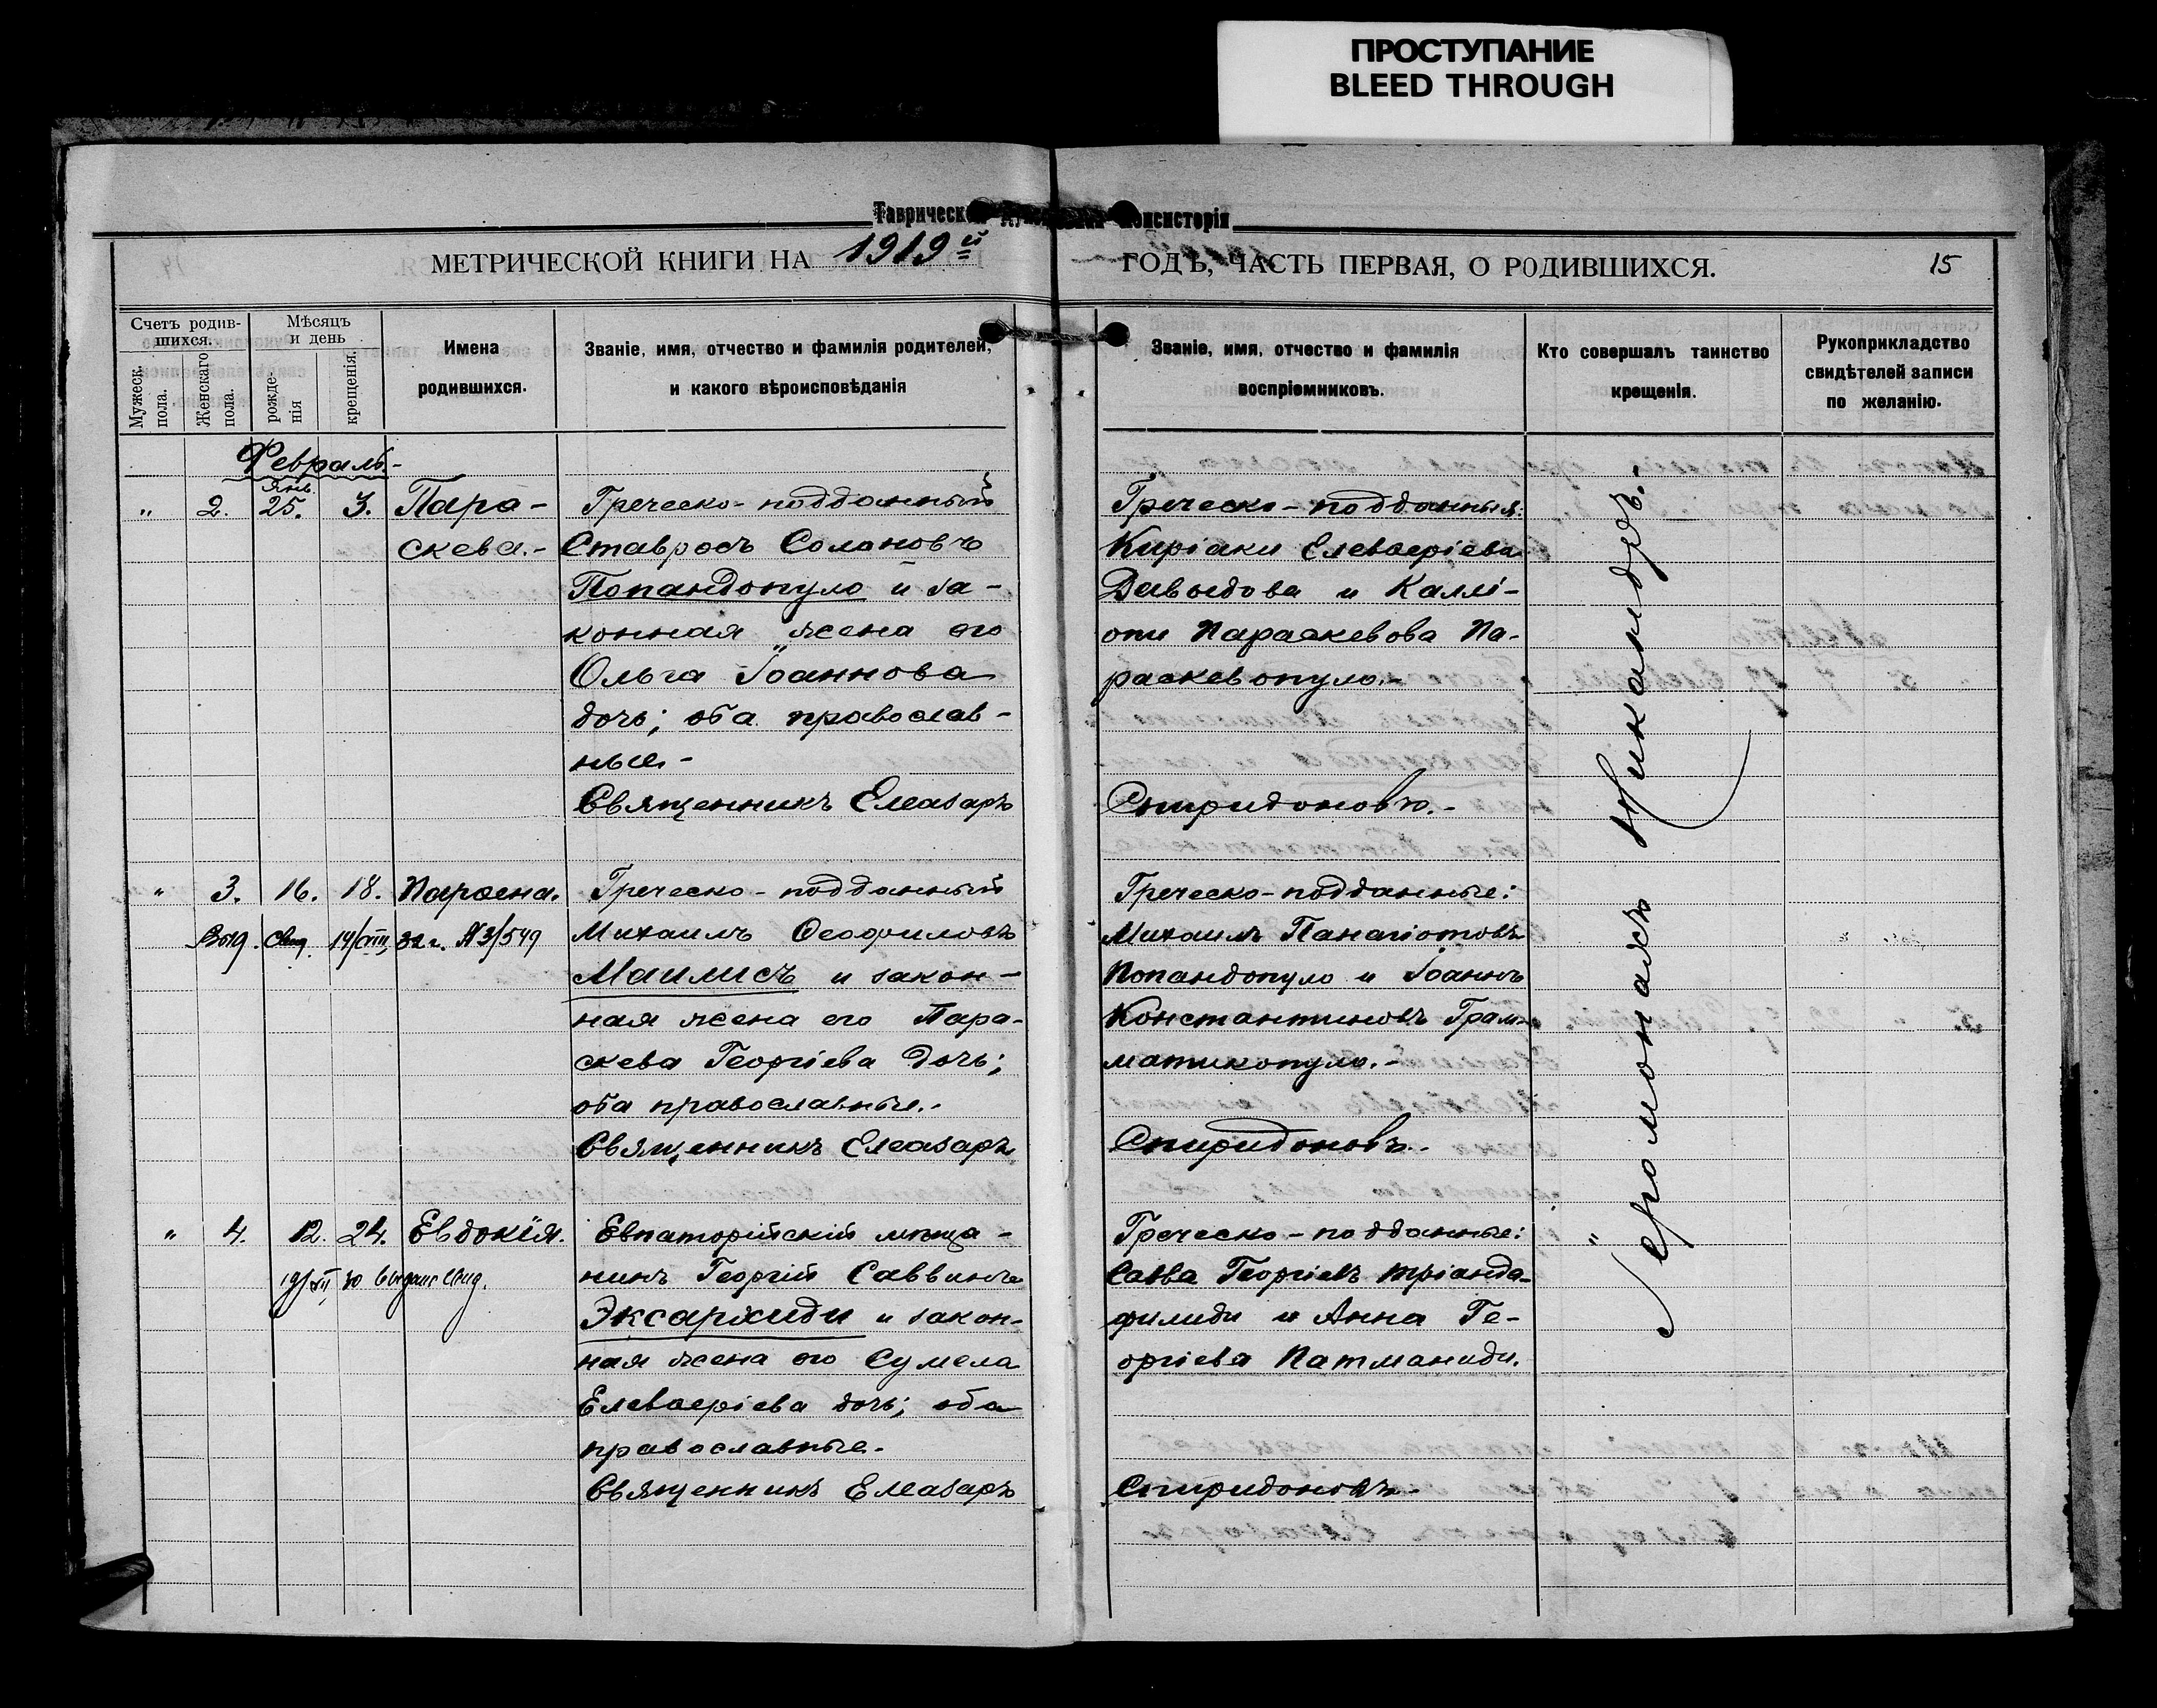 ПРОСТУПАНИЕ
BLEED THROUGH
Таврической Консисторіи
МЕТРИЧЕСКОЙ КНИГИ НА 1919й ГОДЪ, ЧАСТЬ ПЕРВАЯ, О РОДИВШИХСЯ.
15
Счетъ родив-
шихся.
Мужеск.
пола.
Женскаго
пола.
Мѣсяцъ
и день
рожде-
нія
крещенія.
Имена
родившихся.
Званіе, имя, отчество и фамилія родителей,
и какого вѣроисповѣданія
Званіе, имя, отчество и фамилія
воспріемниковъ.
Кто совершалъ таинство
крещенія.
Рукоприкладство
свидѣтелей записи
по желанію.
Февраль.-
Янв.
" 2. 25. 3. Пара-
скева.-
Греческо-подданный
Ставросъ Солоновъ
Попандопуло и за-
конная жена его
Ольга Іоаннова
дочь; оба православ-
ные.-
Священникъ Елеазаръ
Греческо-подданныя:
Киріаки Елевѳеріева
Давыдова и Каллі-
опи Параскевова Па-
раскевопуло.-
Спиридоновъ.-
" 3. 16. 18. Парѳена.
14/VIII 32 г. № 3/549
Греческо-подданный
Михаилъ Ѳеофиловъ
Маилисъ и закон-
ная жена его Пара-
скева Георгіева дочь;
оба православные.-
Священникъ Елеазаръ
Греческо-подданные:
Михаилъ Панагіотовъ
Попандопуло и Іоаннъ
Константиновъ Грам-
матикопуло.-
Спиридоновъ.-
" 4. 12. 24. Евдокія.
19/XII 30 выдано свид.
Евпаторійскій мѣща-
нинъ Георгій Саввинъ
Эксархиди и закон-
ная жена его Сумела
Елевѳеріева дочь; оба
православные.
Священникъ Елеазаръ
Греческо-подданные:
Савва Георгіевъ Тріанда-
филиди и Анна Ге-
оргіева Патманиди.
Спиридоновъ.-
Іеромонахъ Никандръ.